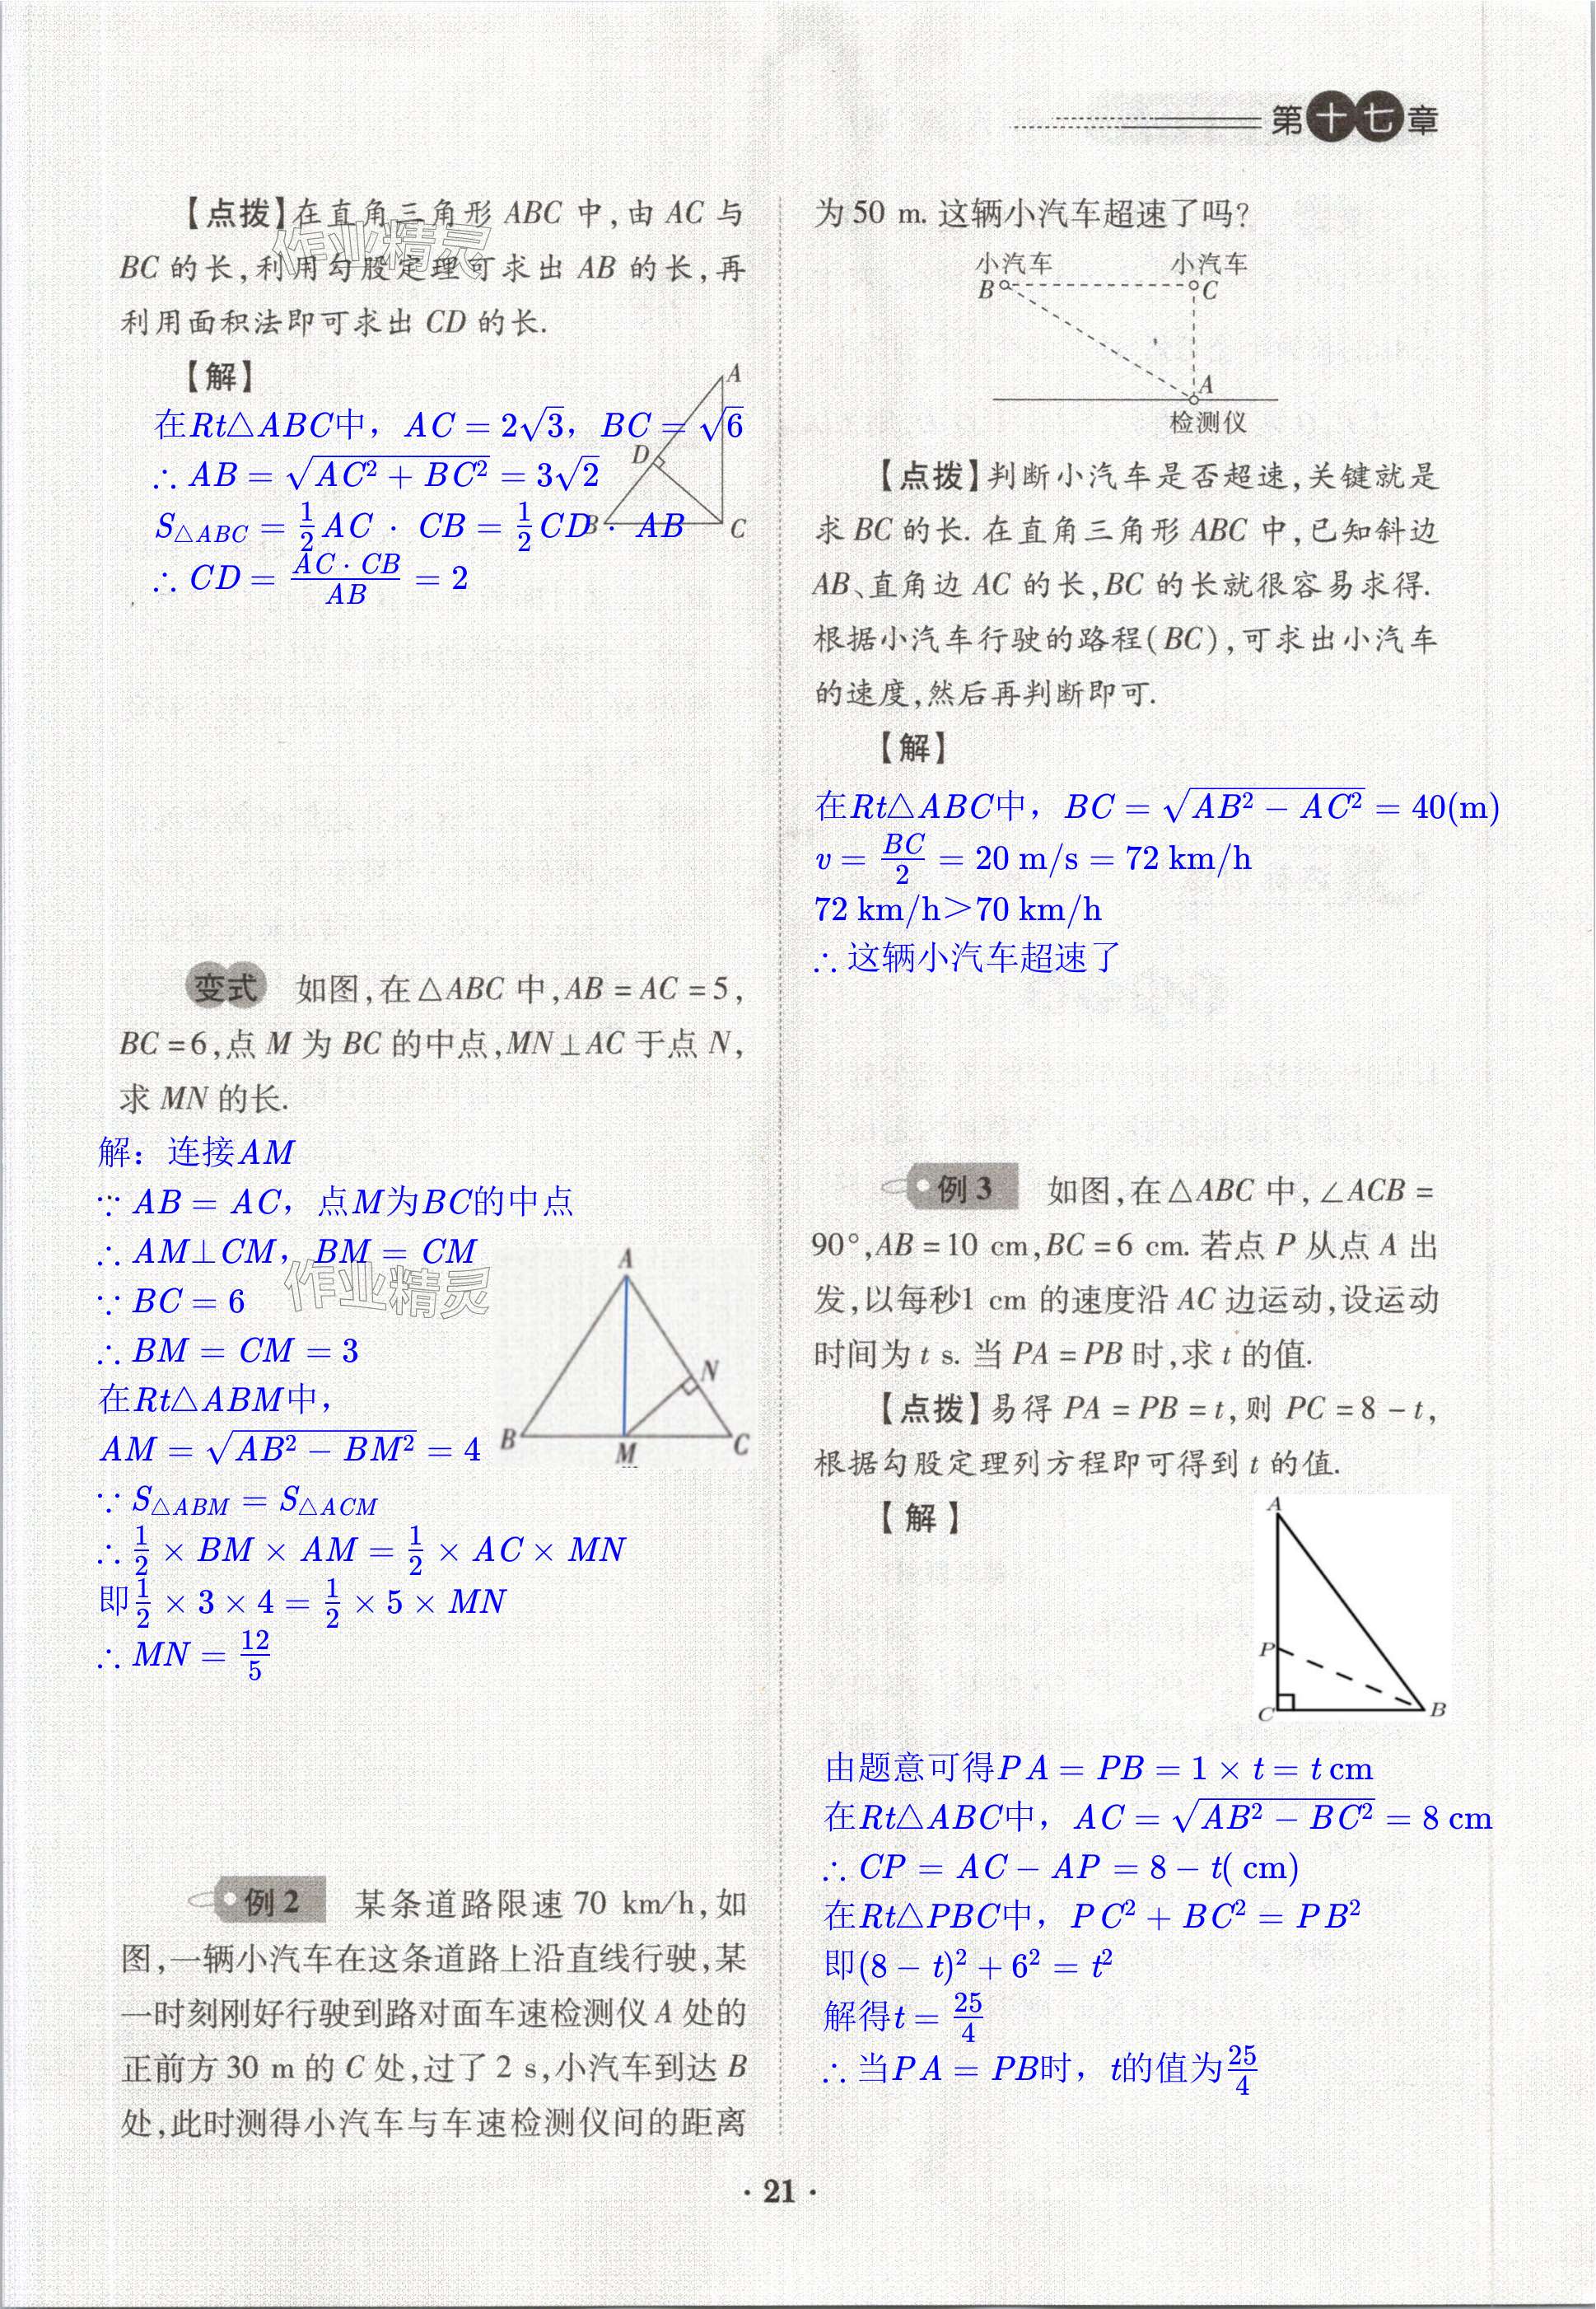 第十七章
【点拨】在直角三角形 ABC 中,由 AC 与
BC 的长,利用勾股定理可求出 AB 的长,再
利用面积法即可求出 CD 的长.
作业精灵
【解】
在Rt△ABC中，AC = 2√3，BC = √6
∴ AB = √(AC² + BC²) = 3√2
S△ABC = 1/2 AC · CB = 1/2 CD · AB
∴ CD = (AC · CB)/AB = 2
A
D
B
C
变式 如图,在△ABC 中,AB = AC = 5,
BC = 6,点 M 为 BC 的中点,MN⊥AC 于点 N,
求 MN 的长.
解：连接AM
∵ AB = AC，点M为BC的中点
∴ AM⊥CM，BM = CM
作业精灵
∵ BC = 6
∴ BM = CM = 3
在Rt△ABM中，
AM = √(AB² − BM²) = 4
∵ S△ABM = S△ACM
∴ 1/2 × BM × AM = 1/2 × AC × MN
即1/2 × 3 × 4 = 1/2 × 5 × MN
∴ MN = 12/5
A
N
B
M
C
例2 某条道路限速 70 km/h,如
图,一辆小汽车在这条道路上沿直线行驶,某
一时刻刚好行驶到路对面车速检测仪 A 处的
正前方 30 m 的 C 处,过了 2 s,小汽车到达 B
处,此时测得小汽车与车速检测仪间的距离
为 50 m. 这辆小汽车超速了吗?
小汽车 小汽车
B C
A
检测仪
【点拨】判断小汽车是否超速,关键就是
求 BC 的长. 在直角三角形 ABC 中,已知斜边
AB、直角边 AC 的长,BC 的长就很容易求得.
根据小汽车行驶的路程(BC),可求出小汽车
的速度,然后再判断即可.
【解】
在Rt△ABC中，BC = √(AB² − AC²) = 40(m)
v = BC/2 = 20 m/s = 72 km/h
72 km/h＞70 km/h
∴ 这辆小汽车超速了
例3 如图,在△ABC 中,∠ACB =
90°,AB = 10 cm,BC = 6 cm. 若点 P 从点 A 出
发,以每秒1 cm 的速度沿 AC 边运动,设运动
时间为 t s. 当 PA = PB 时,求 t 的值.
【点拨】易得 PA = PB = t,则 PC = 8 − t,
根据勾股定理列方程即可得到 t 的值.
【解】
A
P
C
B
由题意可得PA = PB = 1 × t = t cm
在Rt△ABC中，AC = √(AB² − BC²) = 8 cm
∴ CP = AC − AP = 8 − t( cm)
在Rt△PBC中，PC² + BC² = PB²
即(8 − t)² + 6² = t²
解得t = 25/4
∴ 当PA = PB时，t的值为25/4
· 21 ·